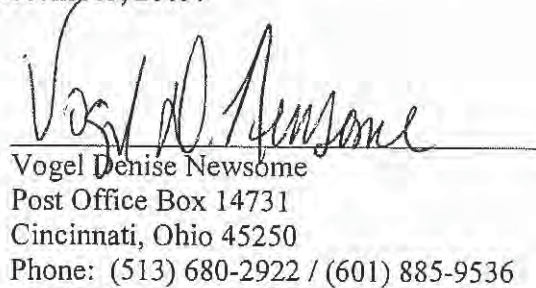 Vogel D. Newsome
Vogel Denise Newsome
Post Office Box 14731
Cincinnati, Ohio 45250
Phone: (513) 680-2922 / (601) 885-9536